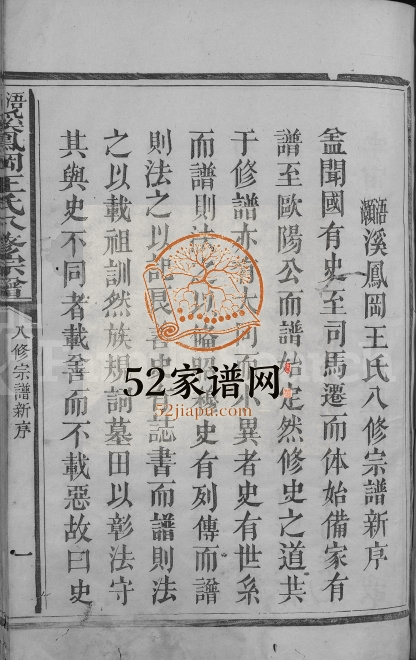 浯溪鳳岡王氏八修宗譜新序
盖聞國有史至司馬遷而体始備家有
譜至歐陽公而譜始定然修史之道共
于修譜亦大同而異者史有世系
而譜則法之以史有列傳而譜
則法之以史有誌書而譜則法
之以載祖訓然族規詞墓田以彰法守
其與史不同者載善而不載惡故曰史
浯溪鳳岡王氏八修宗譜
八修宗譜新序
一
52家谱网
52jiapu.com